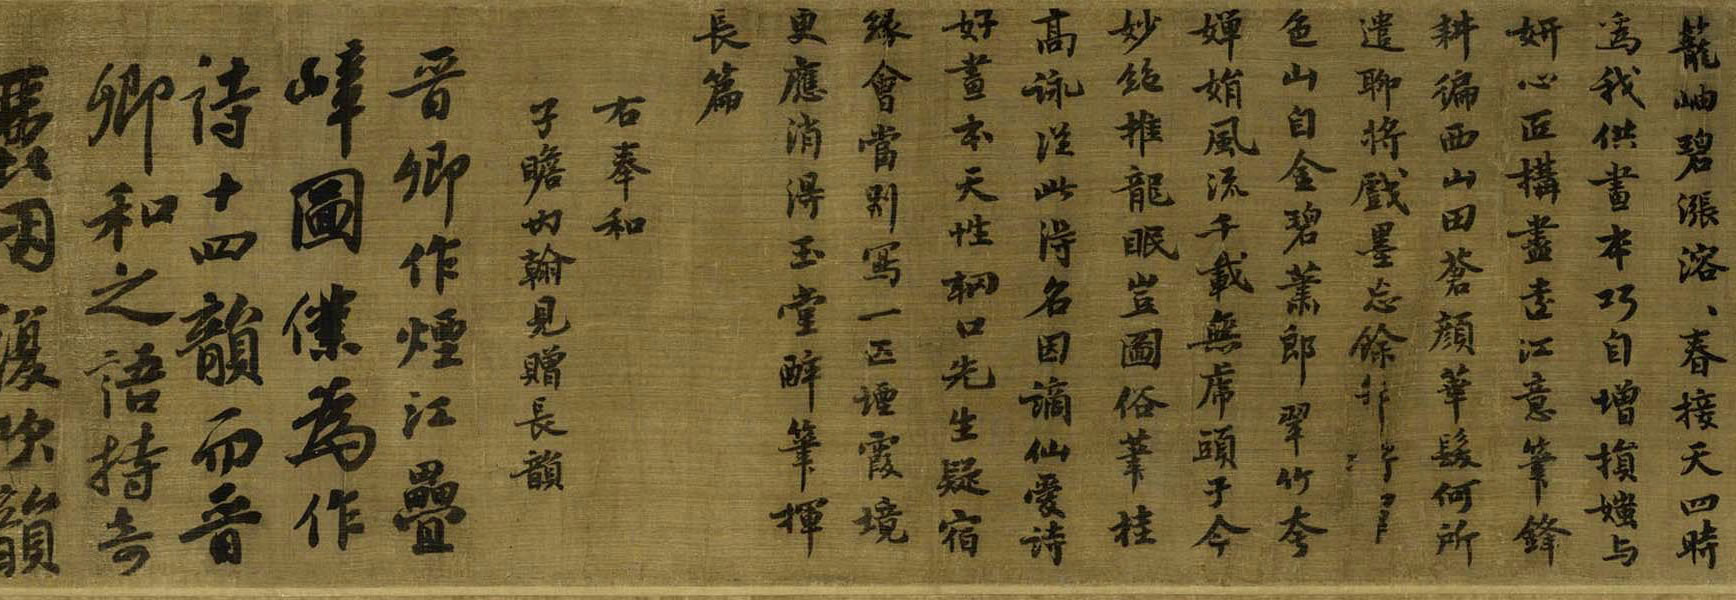 蘢岫碧漲溶、春接天四時
為我供畫本巧自增損媸与
妍心匠構盡遠江意筆鋒
耕徧西山田蒼顔華髮何所
遣聊將戲墨忘餘
色山自金碧蕭郎翠竹夸
嬋娟風流千載無虎頭于今
妙絶推龍眠豈圖俗筆挂
高詠從此得名因謫仙愛詩
好畫本天性輞口先生疑宿
緣會當別寫一匹煙霞境
更應消得玉堂醉筆揮
長篇
右奉和
子瞻內翰見贈長韻
晉卿作煙江疊
嶂圖僕為作
詩十四韻而晉
卿和之語特奇
麗因復次韻